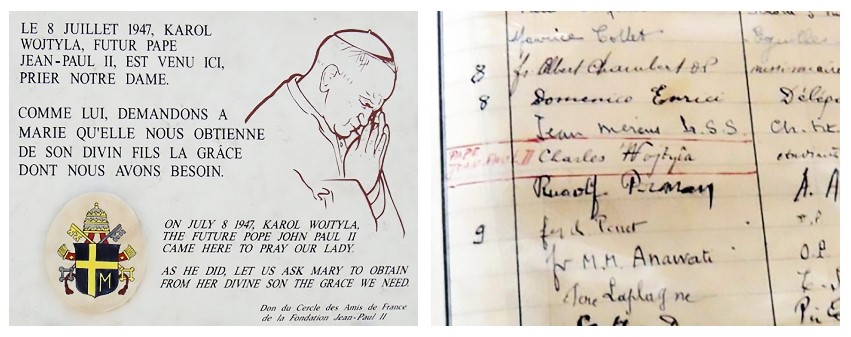 LE 8 JUILLET 1947, KAROL
WOJTYLA, FUTUR PAPE
JEAN-PAUL II, EST VENU ICI,
PRIER NOTRE DAME.
COMME LUI, DEMANDONS A
MARIE QU'ELLE NOUS OBTIENNE
DE SON DIVIN FILS LA GRÂCE
DONT NOUS AVONS BESOIN.
M
ON JULY 8 1947, KAROL WOJTYLA,
THE FUTURE POPE JOHN PAUL II
CAME HERE TO PRAY OUR LADY.
AS HE DID, LET US ASK MARY TO OBTAIN
FROM HER DIVINE SON THE GRACE WE NEED.
Don du Cercle des Amis de France
de la Fondation Jean-Paul II
Maurice Collet
8 fr Albert Chambert O.P missionnaire
8 Domenico Enrici Délég
Jean
PAPE
JEAN-PAUL II Charles Wojtyła
Rudolf A. A
9
fr M.M. Anawati O.P.